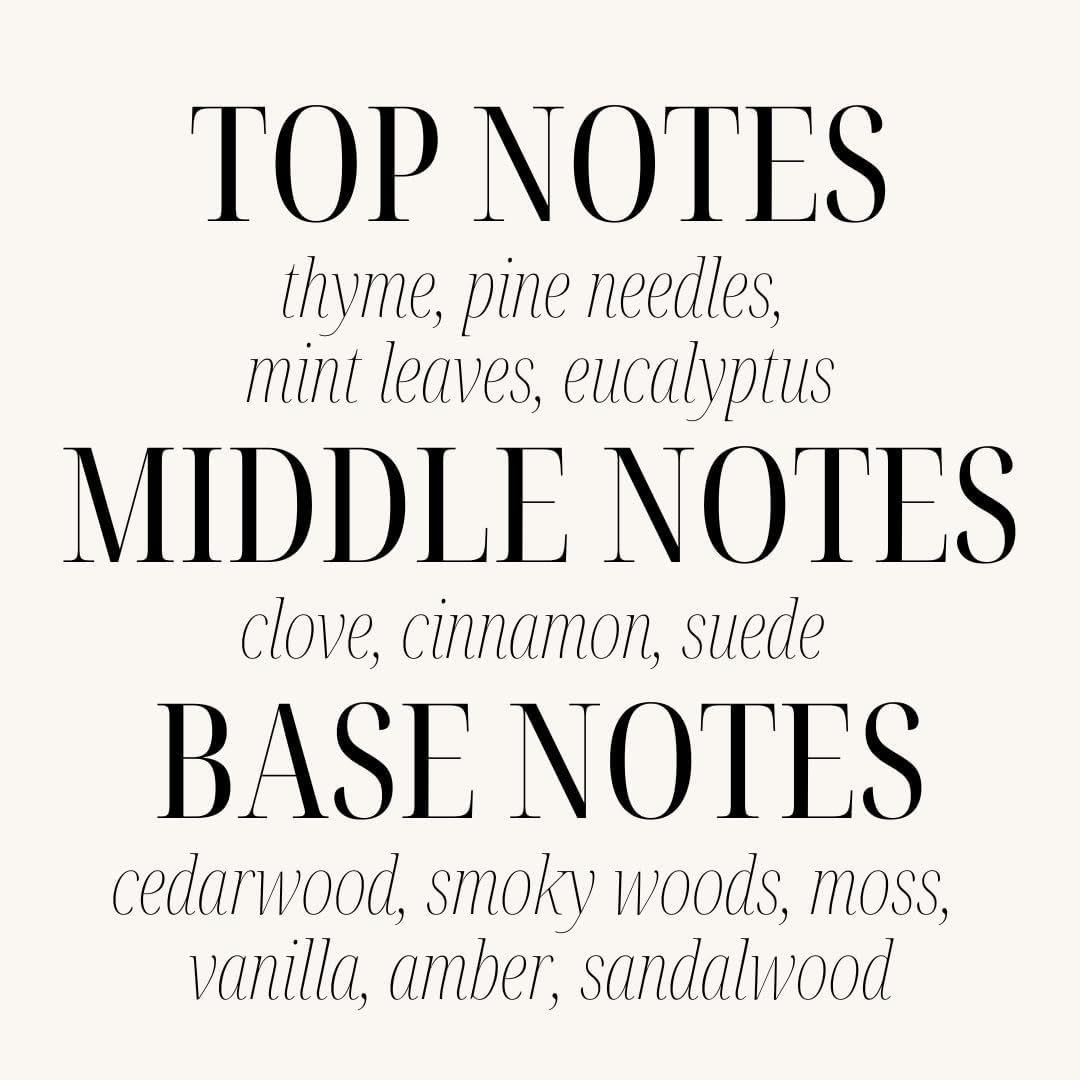 TOP NOTES
thyme, pine needles,
mint leaves, eucalyptus
MIDDLE NOTES
clove, cinnamon, suede
BASE NOTES
cedarwood, smoky woods, moss,
vanilla, amber, sandalwood